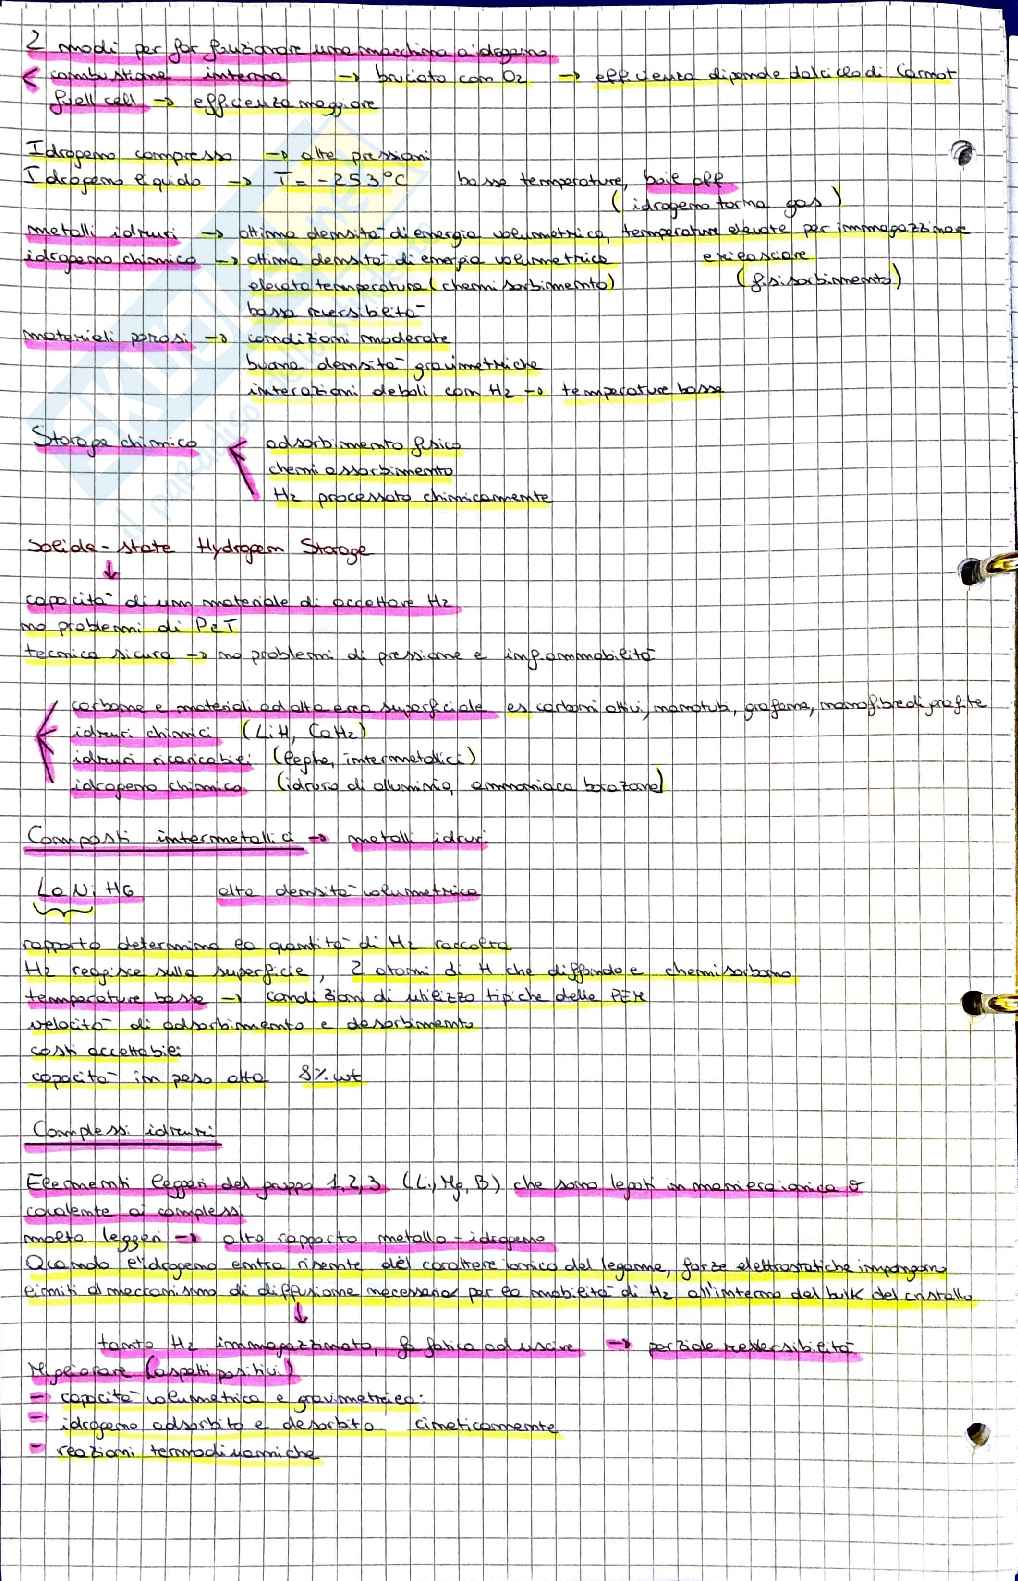 2 modi per far funzionare una macchina a idrogeno
combustione interna → bruciato con O2 → efficienza dipende dal ciclo di Carnot
fuell cell → efficienza maggiore
Idrogeno compresso → alte pressioni
Idrogeno liquido → T = -253°C basse temperature, boil off
(idrogeno torna gas)
metalli idruri → ottima densità di energia volumetrica, temperature elevate per immagazzinare
idrogeno chimico → ottima densità di energia volumetrica e rilasciare
elevata temperatura (chemisorbimento) (fisisorbimento)
bassa reversibilità
materiali porosi → condizioni moderate
buone densità gravimetriche
interazioni deboli con H2 → temperature basse
Storage chimico adsorbimento fisico
chemi assorbimento
H2 processato chimicamente
Solide-state Hydrogen Storage
↓
capacità di un materiale di accettare H2
no problemi di P e T
tecnica sicura → no problemi di pressione e infiammabilità
carbone e materiali ad alta area superficiale es carboni attivi, nanotubi, grafene, nanofibre di grafite
idruri chimici (LiH, CaH2)
idruri ricaricabili (leghe, intermetallici)
idrogeno chimico (idruro di alluminio, ammoniaca borazane)
Composti intermetallici → metalli idruri
LaNiH6 alta densità volumetrica
rapporto determina la quantità di H2 raccolta
H2 reagisce sulla superficie, 2 atomi di H che diffonde e chemisorbono
temperature basse → condizioni di utilizzo tipiche delle PEM
velocità di adsorbimento e desorbimento
costi accettabili
capacità in peso alta 8% wt
Complessi idruri
Elementi leggeri del gruppo 1,2,3 (Li, Mg, B) che sono legati in maniera ionica o
covalente ai complessi
molto leggeri → alto rapporto metallo-idrogeno
Quando l'idrogeno entra risente del carattere ionico del legame, forze elettrostatiche impongono
limiti al meccanismo di diffusione necessario per la mobilità di H2 all'interno del bulk del cristallo
↓
tanto H2 immagazzinato, fa fatica ad uscire → parziale reversibilità
Migliorare (aspetti positivi)
- capacità volumetrica e gravimetrica:
- idrogeno adsorbito e desorbito cineticamente
- reazioni termodinamiche